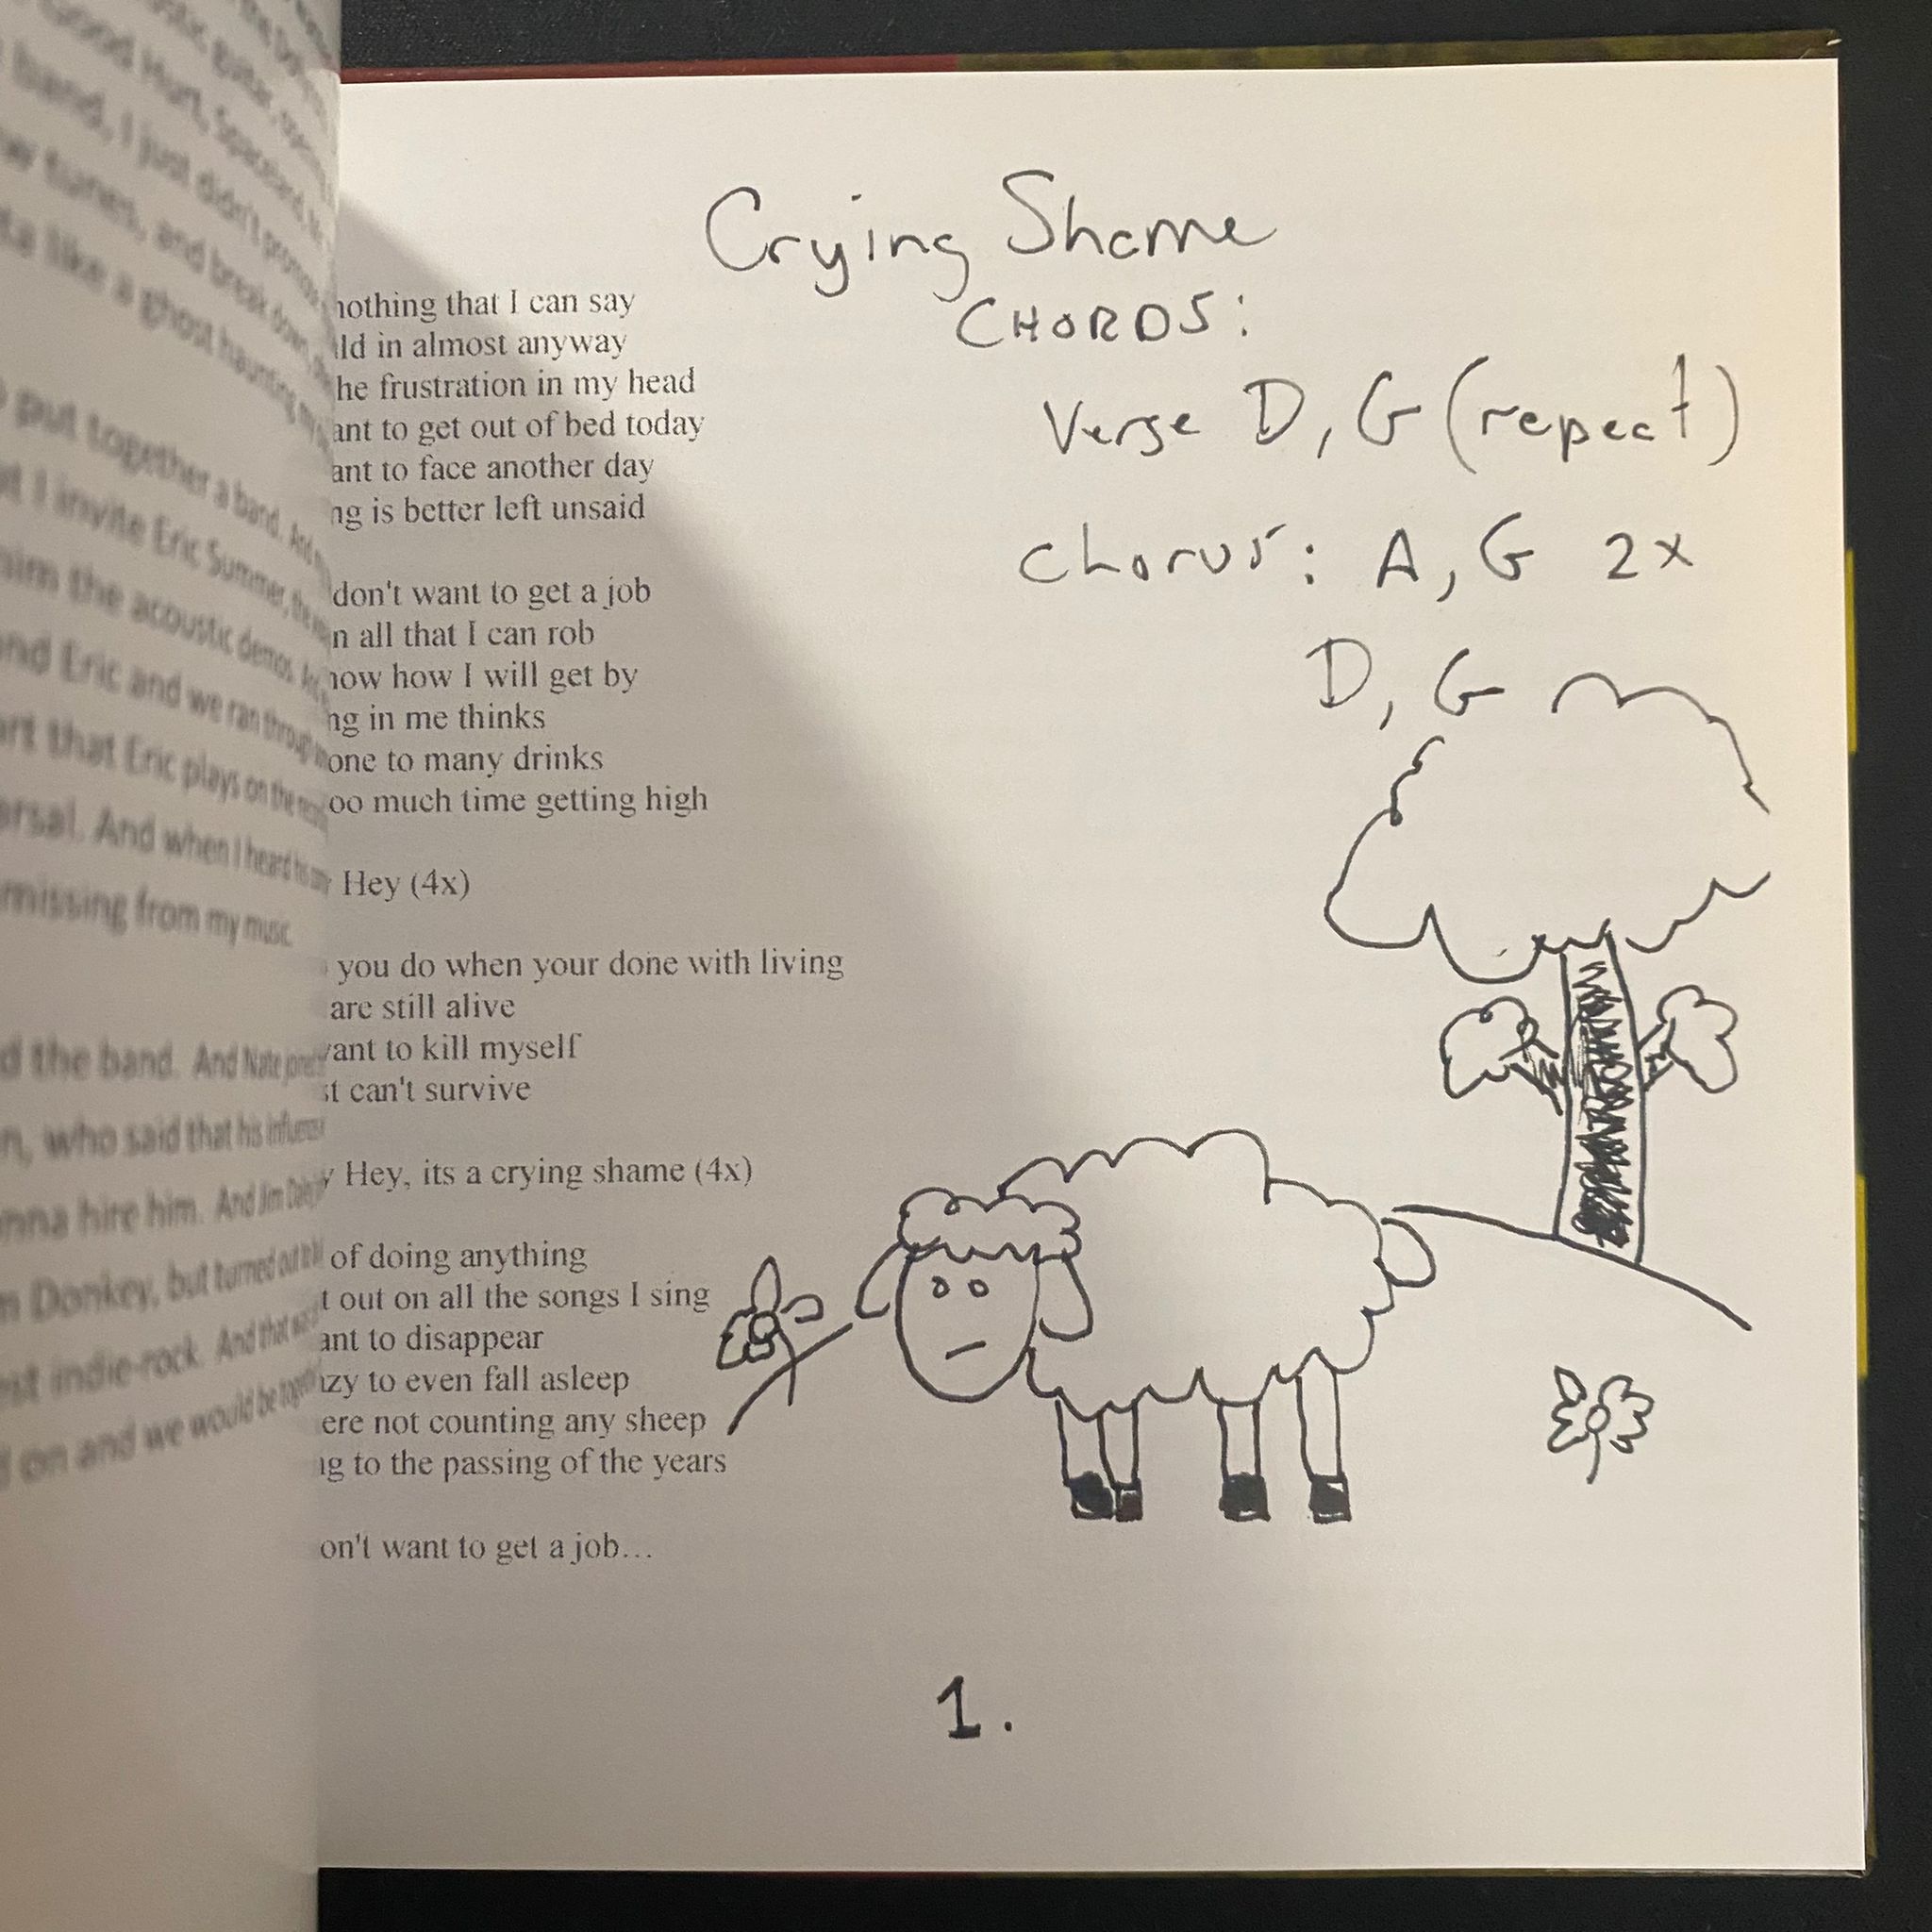 Good Hurt,
band, I just didn't
tunes, and break down,
like a ghost haunting my
put together a band. And
I invite Eric Summer, the
the acoustic demos.
and Eric and we ran through
that Eric plays on the
And when I heard
missing from my music.
the band. And Nate
who said that his influences
hire him. And Jim
Donkey, but turned out
indie-rock. And that
on and we would be together
Crying Shame
CHORDS:
Verse D, G (repeat)
Chorus: A, G 2x
D, G
nothing that I can say
ld in almost anyway
he frustration in my head
ant to get out of bed today
ant to face another day
ng is better left unsaid
don't want to get a job
n all that I can rob
now how I will get by
ng in me thinks
one to many drinks
oo much time getting high
Hey (4x)
you do when your done with living
are still alive
ant to kill myself
st can't survive
y Hey, its a crying shame (4x)
of doing anything
t out on all the songs I sing
ant to disappear
azy to even fall asleep
ere not counting any sheep
ng to the passing of the years
on't want to get a job...
1.